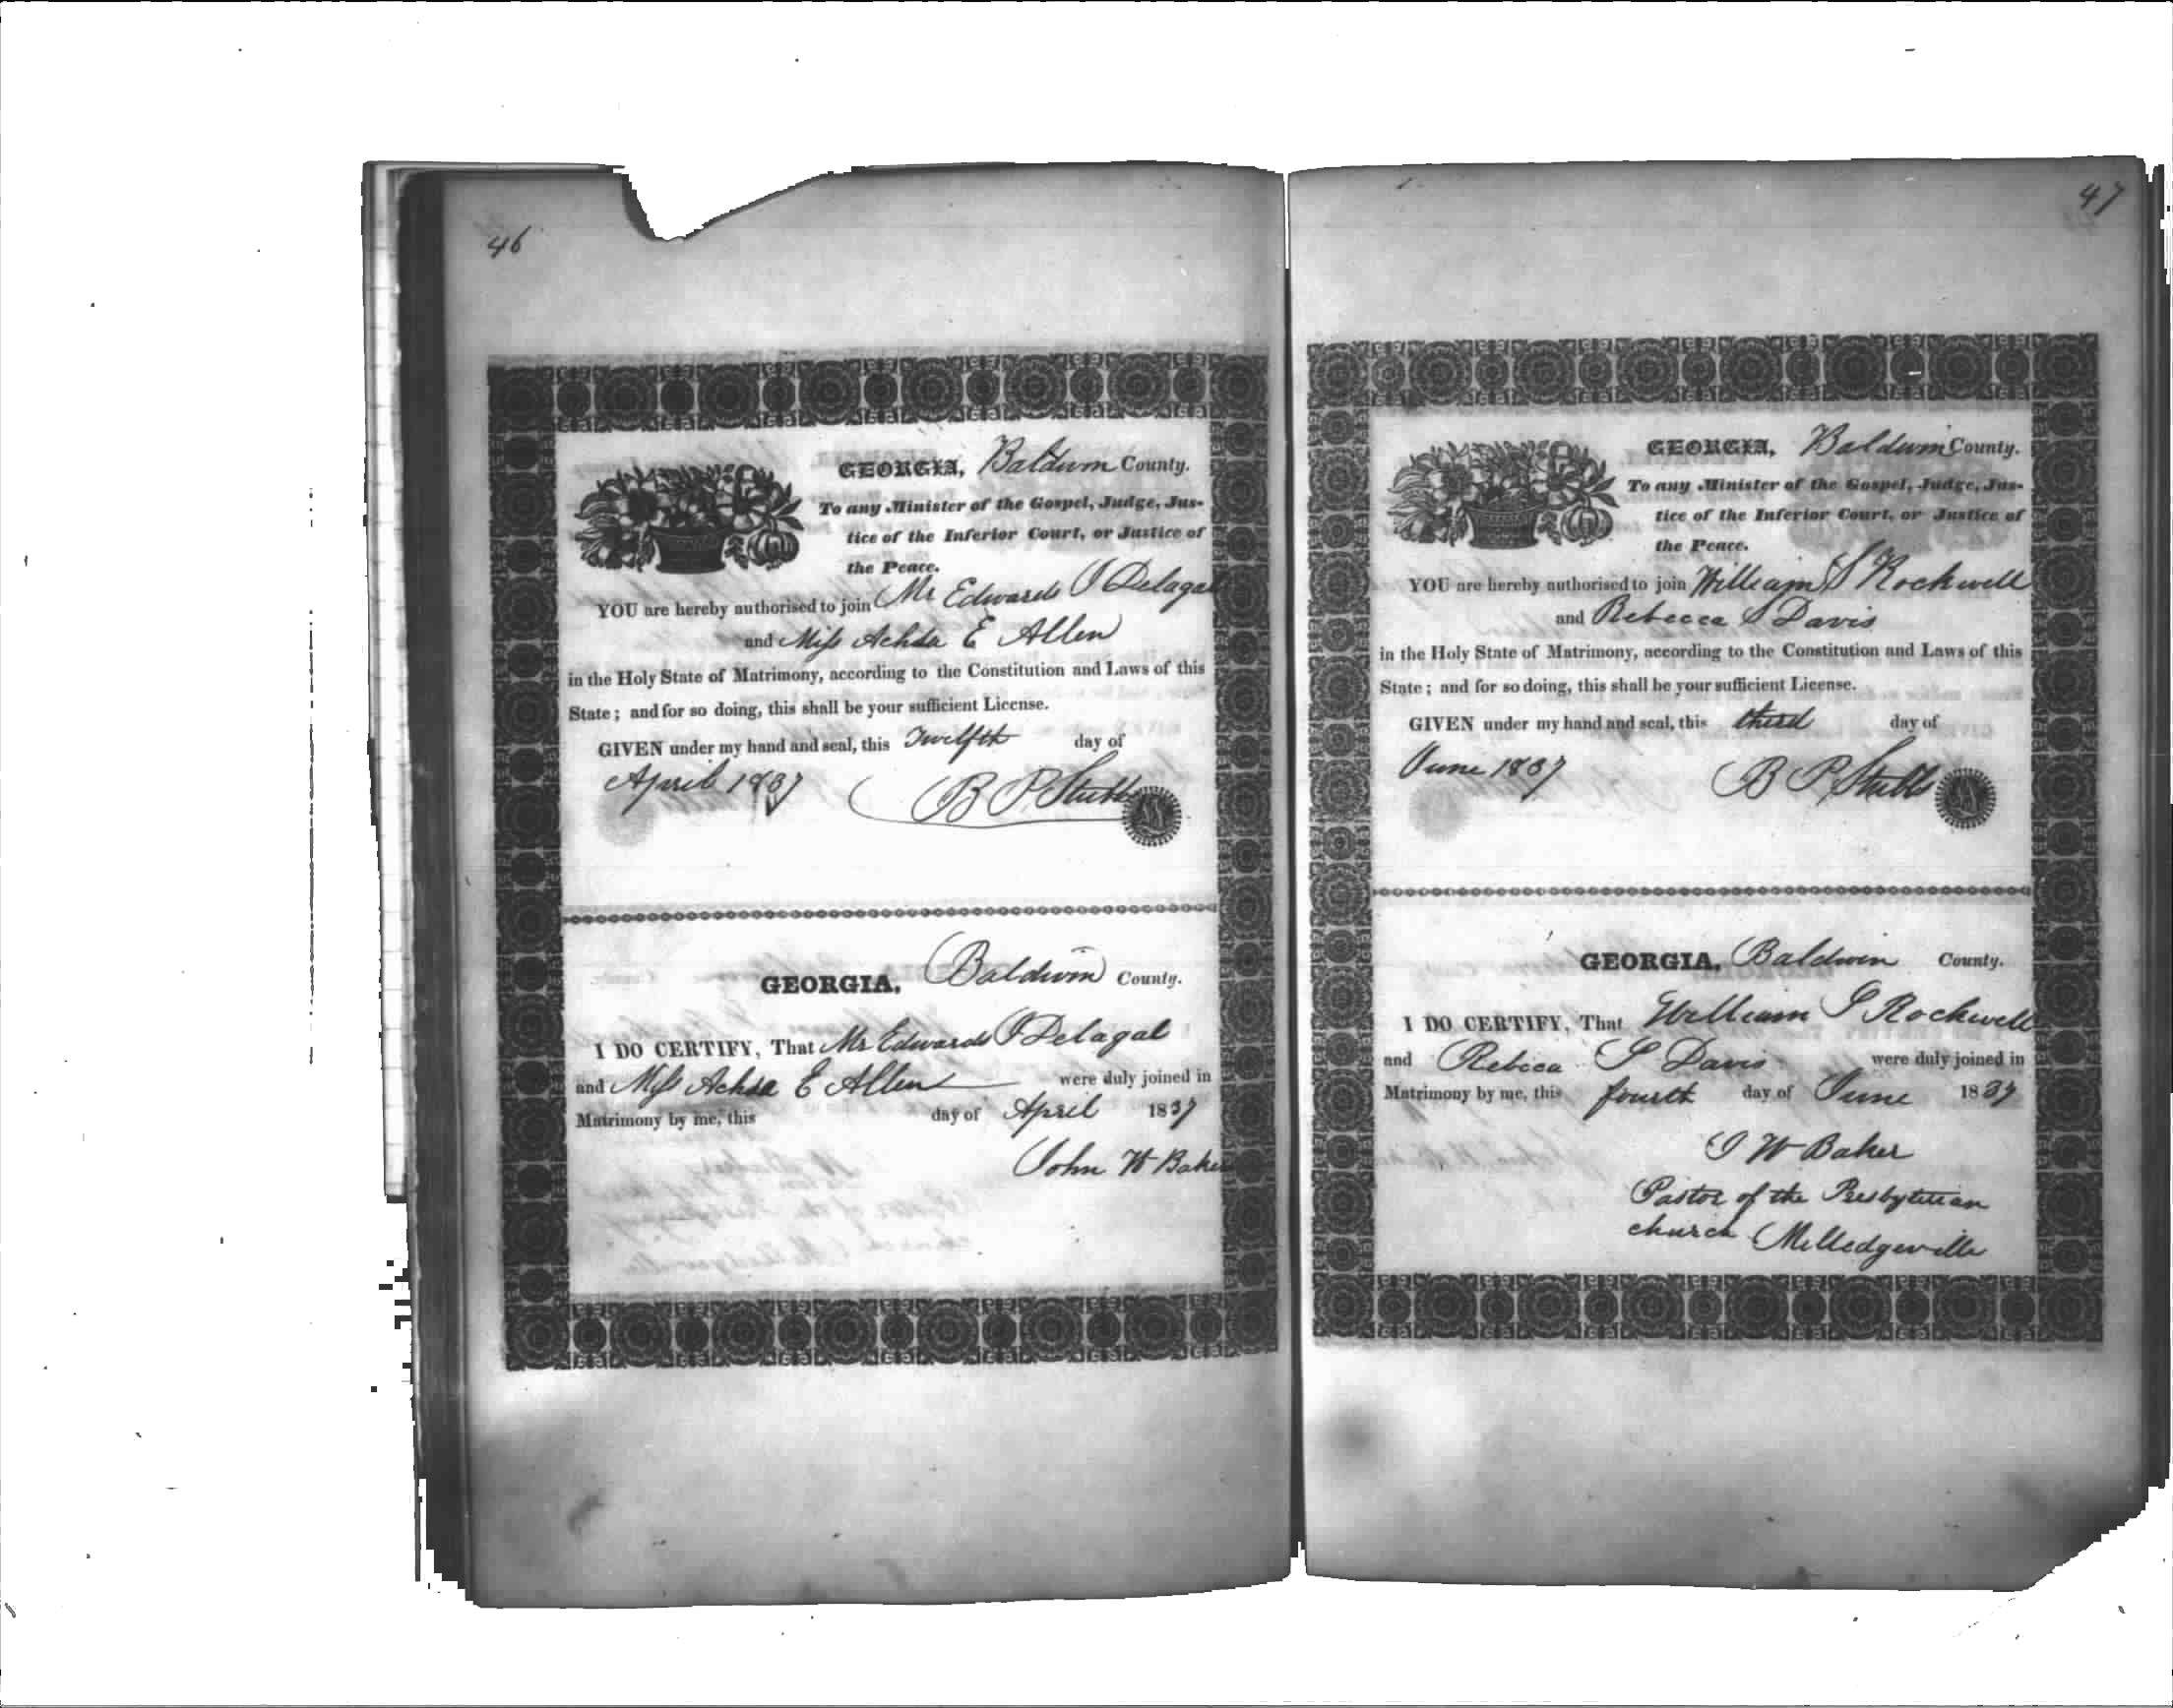 46
GEORGIA, Baldwin County.
To any Minister of the Gospel, Judge, Jus-
tice of the Inferior Court, or Justice of
the Peace.
YOU are hereby authorised to join Mr Edwards J Delagal
and Miss Achsa E Allen
in the Holy State of Matrimony, according to the Constitution and Laws of this
State; and for so doing, this shall be your sufficient License.
GIVEN under my hand and seal, this Twelfth day of
April 1837 B P Stubbs
GEORGIA, Baldwin County.
I DO CERTIFY, That Mr Edwards J Delagal
and Miss Achsa E Allen were duly joined in
Matrimony by me, this day of April 1837
John W Baker
47
GEORGIA, Baldwin County.
To any Minister of the Gospel, Judge, Jus-
tice of the Inferior Court, or Justice of
the Peace.
YOU are hereby authorised to join William S Rockwell
and Rebecca S Davis
in the Holy State of Matrimony, according to the Constitution and Laws of this
State; and for so doing, this shall be your sufficient License.
GIVEN under my hand and seal, this third day of
June 1837 B P Stubbs
GEORGIA, Baldwin County.
I DO CERTIFY, That William S Rockwell
and Rebeca S Davis were duly joined in
Matrimony by me, this fourth day of June 1837
J W Baker
Pastor of the Presbyterian
church Milledgeville